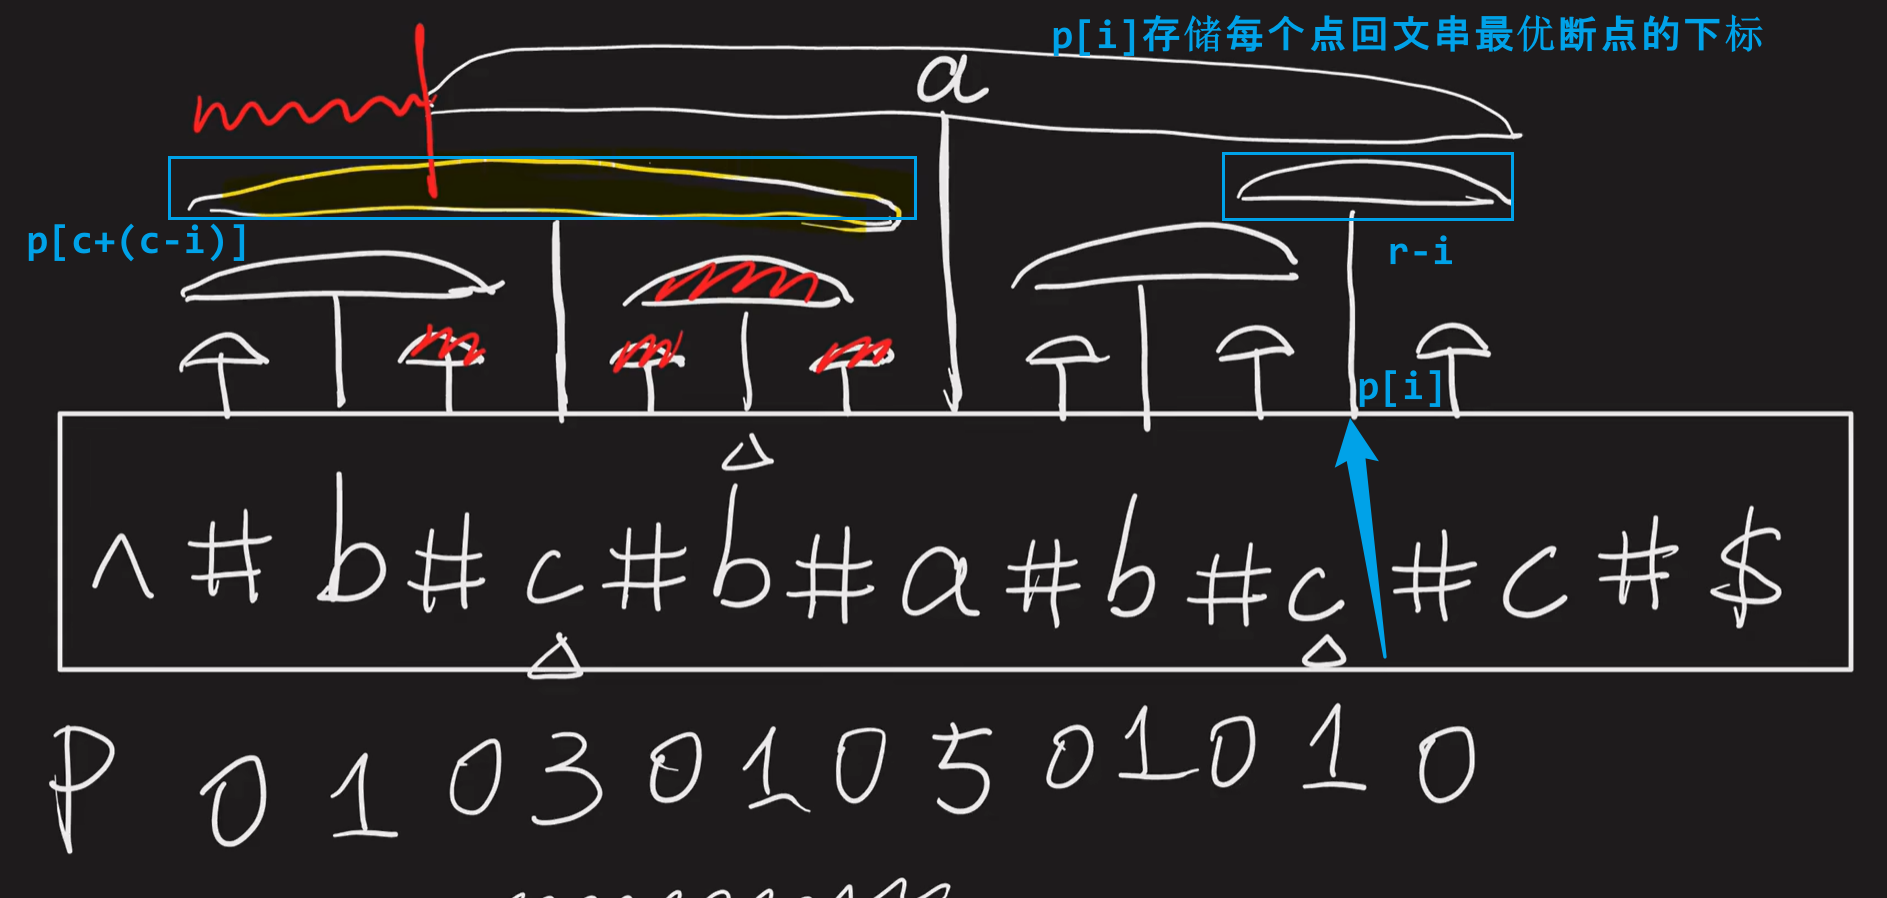 p[i]存储每个点回文串最优断点的下标
a
p[c+(c-i)]
r-i
p[i]
^ # b # c # b # a # b # c # c # $
P 0 1 0 3 0 1 0 5 0 1 0 1 0